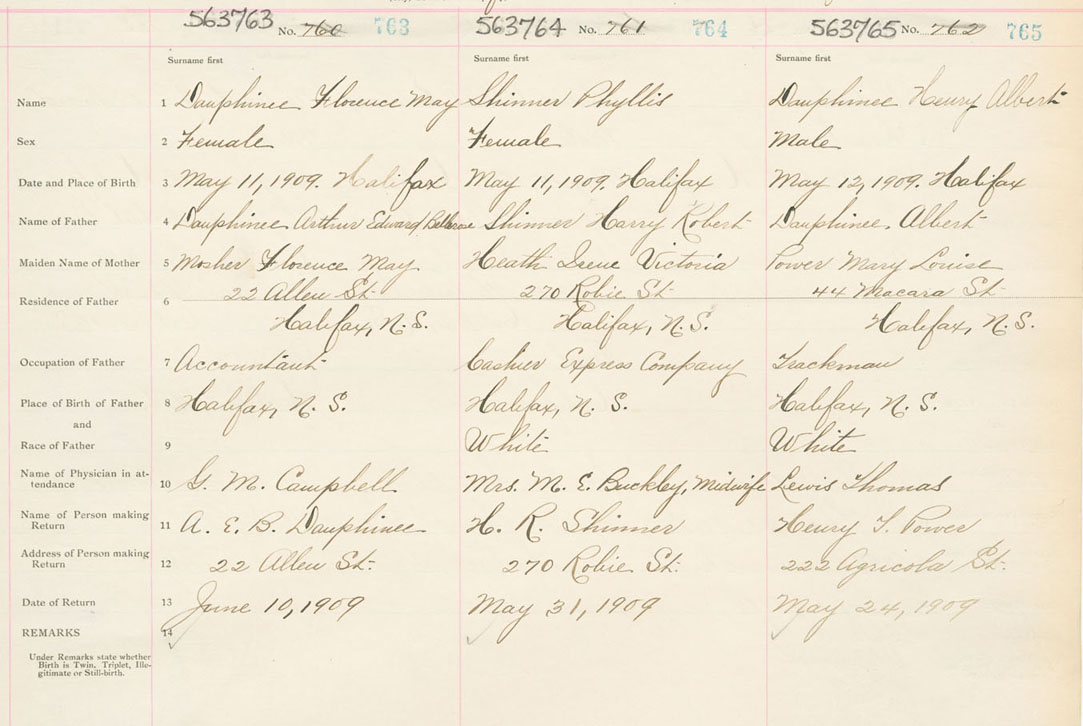 563763 No. 760 763 563764 No. 761 764 563765 No. 762 765
Surname first Surname first Surname first
Name 1 Dauphinee Florence May Shinner Phyllis Dauphinee Henry Albert
Sex 2 Female Female Male
Date and Place of Birth 3 May 11, 1909. Halifax May 11, 1909. Halifax May 12, 1909. Halifax
Name of Father 4 Dauphinee Arthur Edward Bellrose Shinner Harry Robert Dauphinee Albert
Maiden Name of Mother 5 Mosher Florence May Heath Irene Victoria Power Mary Louise
Residence of Father 6 22 Allen St. 270 Robie St. 44 Macara St.
Halifax, N. S. Halifax, N. S. Halifax, N. S.
Occupation of Father 7 Accountant Cashier Express Company Trackman
Place of Birth of Father 8 Halifax, N. S. Halifax, N. S. Halifax, N. S.
and
Race of Father 9 White White
Name of Physician in at-
tendance 10 G. M. Campbell Mrs. M. E. Buckley, Midwife Lewis Thomas
Name of Person making
Return 11 A. E. B. Dauphinee H. R. Shinner Henry T. Power
Address of Person making
Return 12 22 Allen St. 270 Robie St. 222 Agricola St.
Date of Return 13 June 10, 1909 May 31, 1909 May 24, 1909
REMARKS 14
Under Remarks state whether
Birth is Twin, Triplet, Ille-
gitimate or Still-birth.